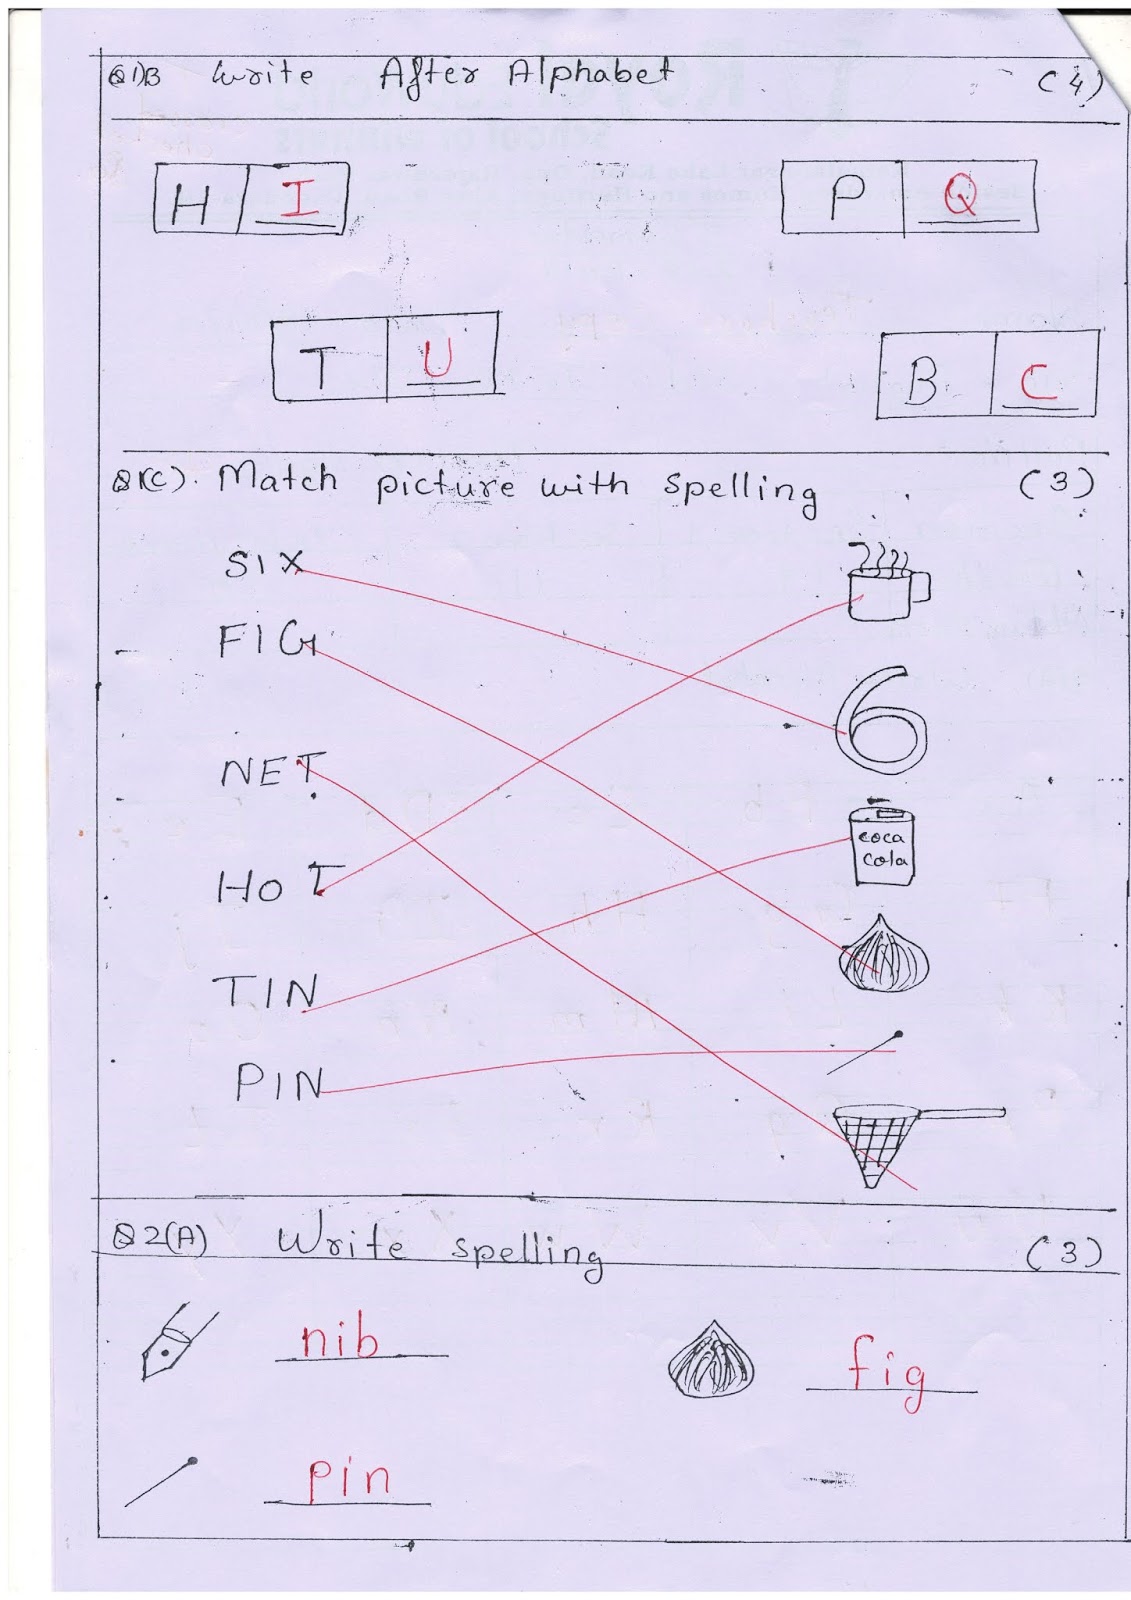 Q1)B Write After Alphabet (4)
H I P Q
T U B C
Q1(C). Match picture with spelling (3)
SIX
FIG
6
NET
coca
cola
HOT
TIN
PIN
Q2(A) Write spelling (3)
nib
fig
pin